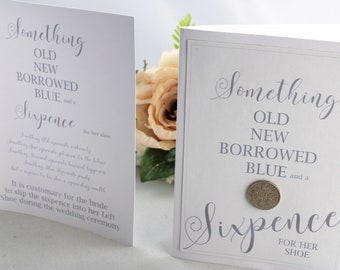 Something
OLD
NEW
BORROWED
BLUE and a
Sixpence for her shoe
Something Old
Something
Something
Something
It is customary for the bride
to slip the sixpence into her Left
Shoe during the wedding ceremony
Something
OLD
NEW
BORROWED
BLUE and a
Sixpence
FOR HER
SHOE